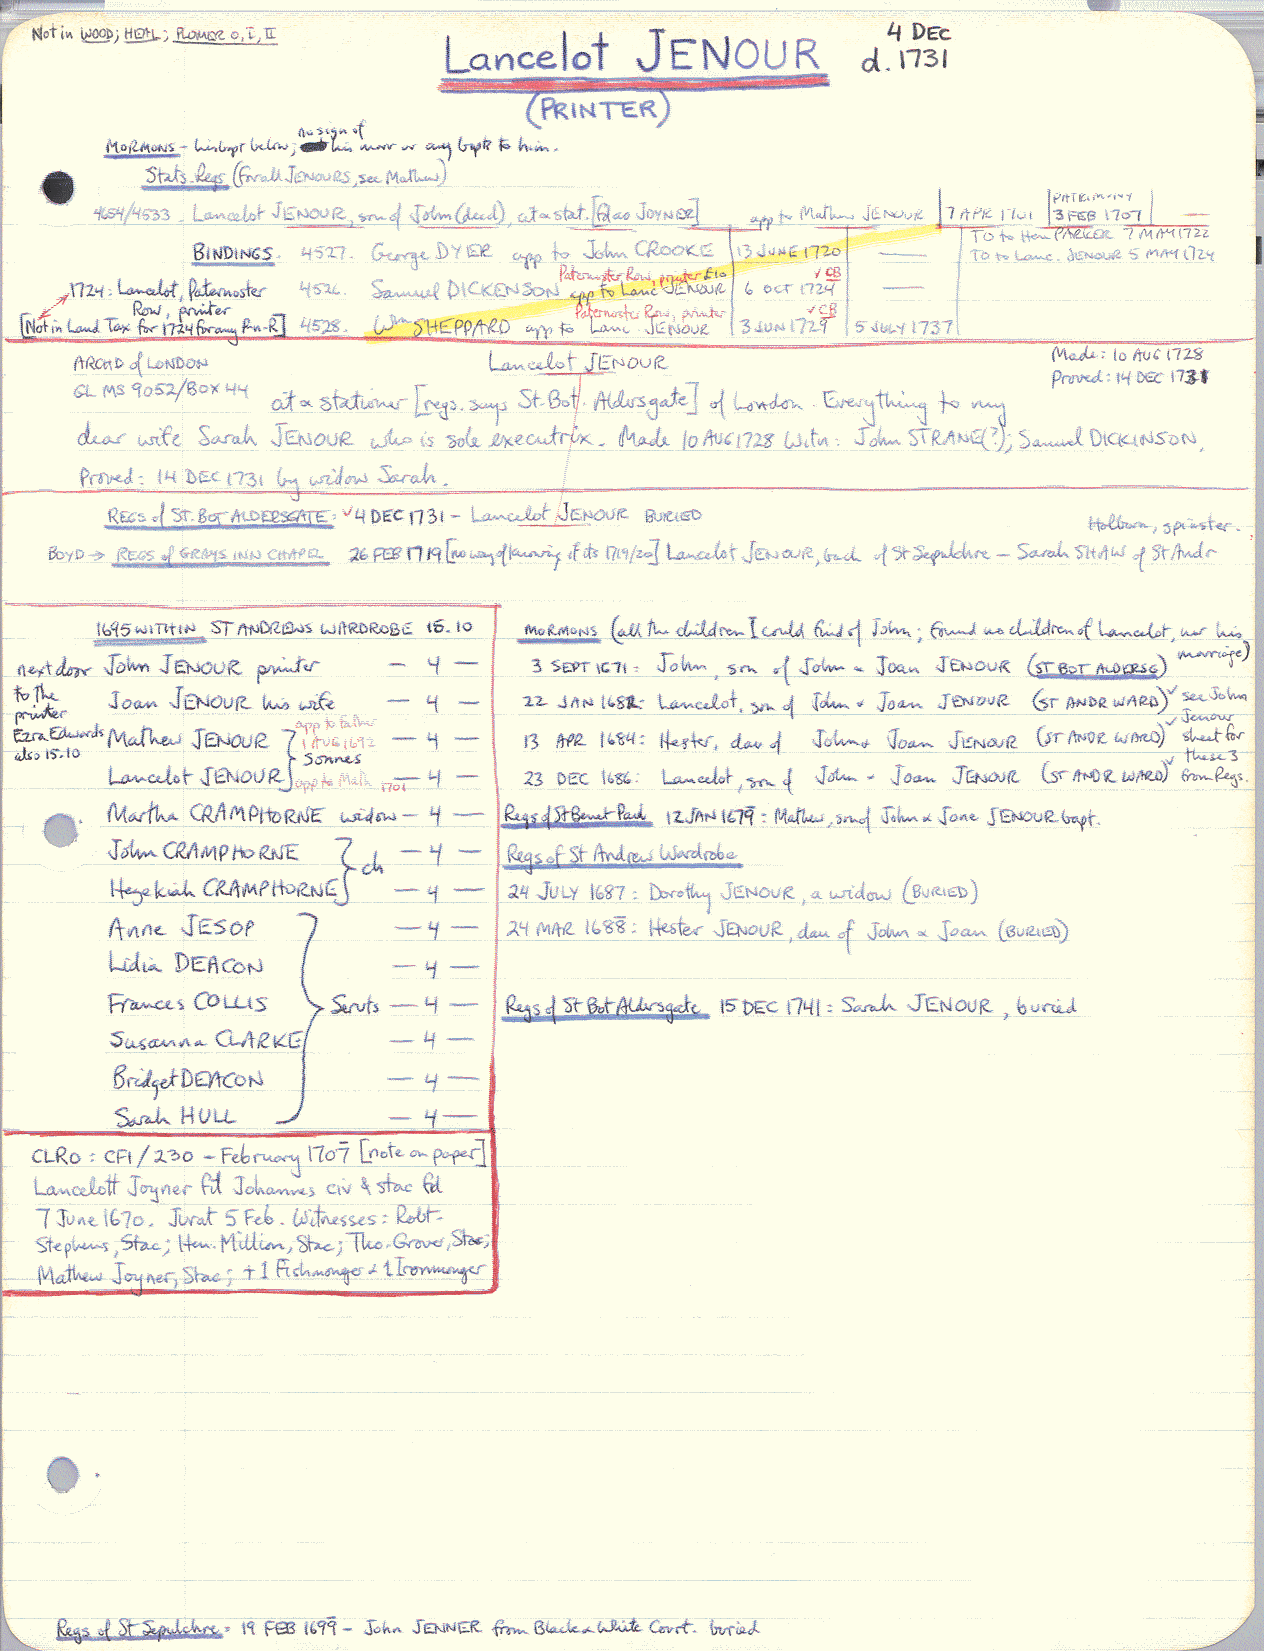 Not in WOOD; HEAL; PLOMER 0, I, II
Lancelot JENOUR
4 DEC
d. 1731
(PRINTER)
no sign of
MORMONS - his bapt below; his marr or any bapt to him.
Stats. Regs (For all JENOURS, see Mathew)
PATRIMONY
4654/4533 - Lancelot JENOUR, son of John (deed), cit & stat. [fd as JOYNER] app to Mathew JENOUR 7 APR 1701 3 FEB 1707 —
TO to Hen PARKER 7 MAY 1722
BINDINGS. 4527. George DYER app to John CROOKE 13 JUNE 1720 — TO to Lanc. JENOUR 5 MAY 1724
Paternoster Row, printer £10 ✓CB
1724: Lancelot, Paternoster 4526. Samuel DICKENSON app to Lanc JENOUR 6 OCT 1724 —
Row, printer Paternoster Row, printer ✓CB
[Not in Land Tax for 1724 for any Pn-R] 4528. Wm SHEPPARD app to Lanc. JENOUR 3 JUN 1729 5 JULY 1737
ARCHD of LONDON Lancelot JENOUR Made: 10 AUG 1728
GL MS 9052/BOX 44 Proved: 14 DEC 1731
cit & stationer [regs. says St. Bot. Aldersgate] of London. Everything to my
dear wife Sarah JENOUR who is sole executrix. Made 10 AUG 1728 Witn: John STRANE(?); Samuel DICKINSON.
Proved: 14 DEC 1731 by widow Sarah.
REGS of ST. BOT ALDERSGATE: ✓4 DEC 1731 - Lancelot JENOUR BURIED
Holborn, spinster.
BOYD → REGS of GRAYS INN CHAPEL 26 FEB 1719 [no way of knowing if its 1719/20] Lancelot JENOUR, bach of St Sepulchre - Sarah SHAW of St Andr
1695 WITHIN ST ANDREWS WARDROBE 15.10
next door John JENOUR printer — 4 —
to the Joan JENOUR his wife — 4 —
printer app to father
Ezra Edwards Mathew JENOUR 1 AUG 1692 — 4 —
also 15.10 Sonnes
Lancelot JENOUR app to Math 1701 — 4 —
Martha CRAMPHORNE widow — 4 —
John CRAMPHORNE — 4 —
ch
Hezekiah CRAMPHORNE — 4 —
Anne JESOP — 4 —
Lidia DEACON — 4 —
Frances COLLIS Servts — 4 —
Susanna CLARKE — 4 —
Bridget DEACON — 4 —
Sarah HULL — 4 —
MORMONS (all the children I could find of John; found no children of Lancelot, nor his
marriage)
3 SEPT 1671: John, son of John & Joan JENOUR (ST BOT ALDERSG)
22 JAN 1682: Lancelot, son of John & Joan JENOUR (ST ANDR WARD) ✓ see John
Jenour
13 APR 1684: Hester, dau of John & Joan JENOUR (ST ANDR WARD) ✓ sheet for
these 3
23 DEC 1686: Lancelot, son of John & Joan JENOUR (ST ANDR WARD) ✓ from Regs.
Regs of St Benet Paul 12 JAN 1679: Mathew, son of John & Jone JENOUR bapt.
Regs of St Andrew Wardrobe
24 JULY 1687: Dorothy JENOUR, a widow (BURIED)
24 MAR 1688: Hester JENOUR, dau of John & Joan (BURIED)
Regs of St Bot Aldersgate 15 DEC 1741: Sarah JENOUR, buried
CLRO: CF1/230 - February 1707 [note on paper]
Lancelott Joyner fil Johannes civ & stac fd
7 June 1670. Jurat 5 Feb. Witnesses: Robt.
Stephens, Stac; Hen. Million, Stac; Tho. Grover, Stac;
Mathew Joyner, Stac; + 1 Fishmonger & 1 Ironmonger
Regs of St Sepulchre: 19 FEB 1699 - John JENNER from Black & White Court. buried